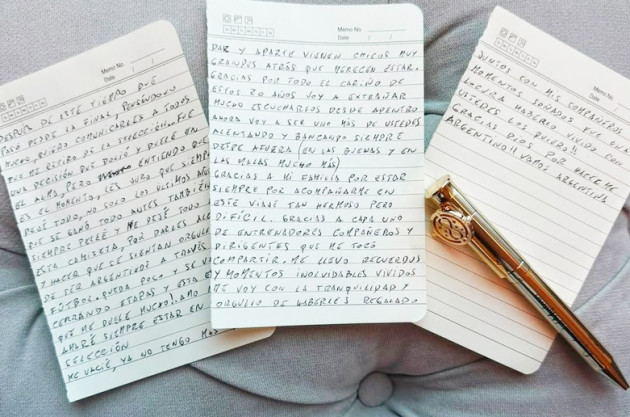 Memo No.
Date / /
DESPUR DE ESTE TIEMPO QUE
PASO DESDE LA FINAL, PENSANDOLO
MUCHO, QUIERO COMUNICARLES A TODOS
QUE ME RETIRO DE LA SELECCION. FUE
UNA DECISIÓN QUE DOLIÓ Y DUELE EN
EL ALMA, PERO ENTIENDO QUE
ES EL MOMENTO, LES JURO QUE SIEMPR
DEJÉ TODO, NO SOLO LOS ULTIMOS AÑOS
QUE SE GANÓ TODO ANTES TAMBIÉN
SIEMPRE PELEÉ Y ME DEJÉ TODO
ESTA CAMISETA, POR DARLES ALE
Y HACER QUE SE SIENTAN ORGULL
DE SER ARGENTINOS A TRAVÉS
FÚTBOL. QUEDA POCO Y SE VA
CERRANDO ETAPAS Y ESTA ES
QUE ME DUELE MUCHO! AMO
AMARÉ SIEMPRE ESTAR EN
SELECCIÓN
ME VACIÉ, YA NO TENGO MAS
Memo No.
Date / /
DAR Y APARTE VIENEN CHICOS MUY
GRANDES ATRÁS QUE MERECEN ESTAR.
GRACIAS POR TODO EL CARIÑO DE
ESTOS 20 AÑOS VOY A EXTRAÑAR
MUCHO ESCUCHARLOS DESDE ADENTRO
AHORA VOY A SER UNO MÁS DE USTEDES
ALENTANDO Y BANCANDO SIEMPRE
DESDE AFUERA (EN LAS BUENAS Y EN
LAS MALAS MUCHO MÁS)
GRACIAS A MI FAMILIA POR ESTAR
SIEMPRE POR ACOMPAÑARME EN
ESTE VIAJE TAN HERMOSO PERO
DIFÍCIL. GRACIAS A CADA UNO
DE ENTRENADORES COMPAÑEROS Y
DIRIGENTES QUE ME TOCÓ
COMPARTIR. ME LLEVO RECUERDOS
Y MOMENTOS INOLVIDABLES VIVIDOS
ME VOY CON LA TRANQUILIDAD Y
ORGULLO DE HABERLES REGALADO
Memo No.
Date / /
JUNTOS CON MIS COMPAÑEROS
MOMENTOS SOÑADOS FUE UNA
LOCURA HABERLO VIVIDO CON
USTEDES LOS QUIERO!!
GRACIAS DIOS POR HACERME
ARGENTINO!! VAMOS ARGENTINA